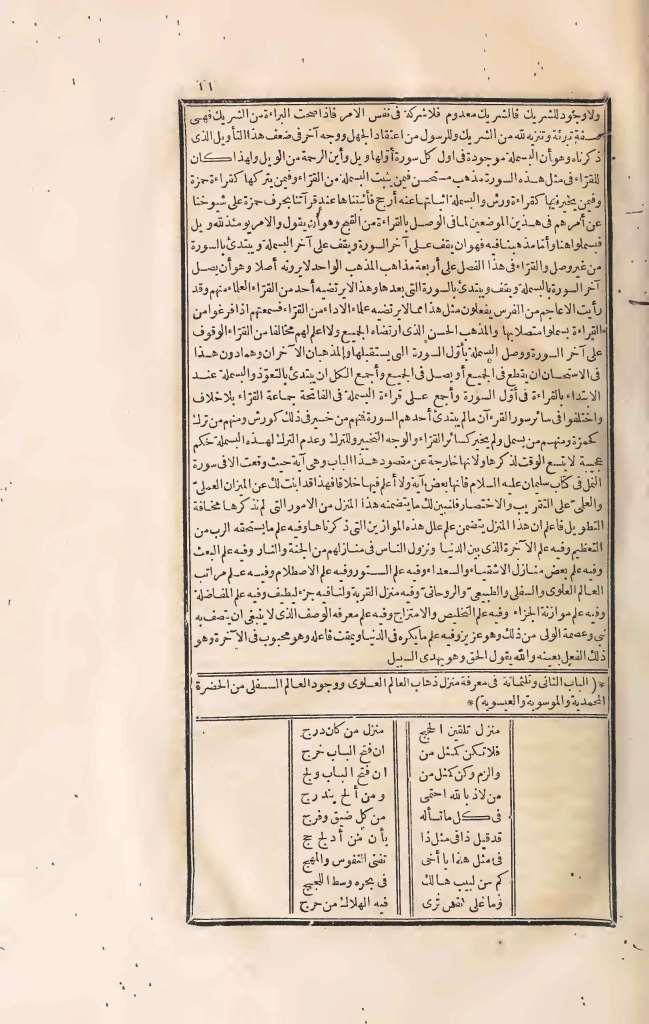 ١١
ولاوجود للشريك فالشريك معدوم فلاشركة فى نفس الامر فاذا صحت البراءة من الشريك فهى
صفة تبرئة وتنزيه لله من الشريك وللرسول من اعتقاد الجهل ووجه آخر فى ضعف هذا التأويل الذى
ذكرناه وهو أن البسملة موجودة فى اول كل سورة أولها ويل وأين الرحمة من الويل ولهذا كان
للقراء فى مثل هذه السورة مذهب مستحسن فيمن يثبت البسملة من القراء وفيمن يتركها كقراءة حمزة
وفيمن يخير فيها كقراءة ورش والبسملة اثباتها عنده أرجح فأثبتناها عند قراءتنا بحرف حمزة على شيوخنا
عن أمرهم فى هذين الموضعين لما فى الوصل بالقراءة من القبح وهو أن يقول والامر يومئذ لله ويل
فبسملوا هنا وأما مذهبنا فيه فهو ان يقف على آخر السورة ويقف على آخر البسملة ويبتدئ بالسورة
من غير وصل والقراء فى هذا الفصل على أربعة مذاهب المذهب الواحد لايرونه أصلا وهو أن يصل
آخر السورة بالبسملة ويقف ويبتدئ بالسورة التى بعدها وهذا لايرتضيه أحد من القراء العلماء منهم وقد
رأيت الاعاجم من الفرس يفعلون مثل هذا مما لايرتضيه علماء الاداء من القراء فسمعتهم اذا فرغوا من
القراءة بسملوا متصلا بها والمذهب الحسن الذى ارتضاه الجميع ولا اعلم لهم مخالفا من القراء الوقوف
على آخر السورة ووصل البسملة بأول السورة التى يستقبلها والمذهبان الآخران وهما دون هذا
فى الاستحسان ان يقطع فى الجميع أو يصل فى الجميع وأجمع الكل ان يبتدئ بالتعوذ والبسملة عند
الابتداء بالقراءة فى أول السورة وأجمع على قراءة البسملة فى الفاتحة جماعة القراء بلاخلاف
واختلفوا فى سائر سور القرآن مالم يبتدئ أحدهم السورة فمنهم من خير فى ذلك كورش ومنهم من ترك
كحمزة ومنهم من بسمل ولم يخير كسائر القراء والوجه التخيير وللترك وعدم الترك لهذه البسملة حكم
عجيبة لايتسع الوقت لذكرها ولانها خارجة عن مقصود هذا الباب وهى آية حيث وقعت الا فى سورة
النمل فى كتاب سليمان عليه السلام فانها بعض آية ولا أعلم فيها خلافا فهذا قد ابنت لك عن الميزان العملى
والعلمى على التقريب والاختصار فلنبين لك ما يتضمنه هذا المنزل من الامور التى لم نذكرها مخافة
التطويل فاعلم ان هذا المنزل يتضمن علم علل هذه الموازين التى ذكرناها وفيه علم مايستحقه الرب من
التعظيم وفيه علم الآخرة الذى بين الدنيا ونزول الناس فى منازلهم من الجنة والنار وفيه علم البعث
وفيه علم بعض منازل الاشقياء والسعداء وفيه علم الستور وفيه علم الاصطلام وفيه علم مراتب
العالم العلوى والسفلى والطبيعى والروحانى وفيه منزل القربة ولنافيه جزء لطيف وفيه علم المفاضلة
وفيه علم موازنة الجزاء وفيه علم التخليص والامتزاج وفيه علم معرفة الوصف الذى لا ينبغى ان يتصف به
نبى وعصمة الولى من ذلك وهو عزيز وفيه علم مايكره فى الدنيا ويمقت فاعله وهو محبوب فى الآخرة وهو
ذلك الفعل بعينه والله يقول الحق وهو يهدى السبيل
*( الباب الثانى وثلثمائة فى معرفة منزل ذهاب العالم العلوى ووجود العالم السفلى من الحضرة
المحمدية والموسوية والعيسوية)*
منزل تلقين الحجج منزل من كان درج
فلاتكن كمثل من ان فتح الباب خرج
والزم وكن كمثل من ان فتح الباب ولج
من لاذ بالله احتمى ومن ألح يندرج
فى كل ماتسأله من كل ضيق وفرج
قد قيل ذا فى مثل ذا بأن من أدلج حج
فى مثل هذا يا أخى تفنى النفوس والمهج
كم من لبيب هالك فى بحره وسط اللجج
وما على نفس ترى فيه الهلاك من حرج